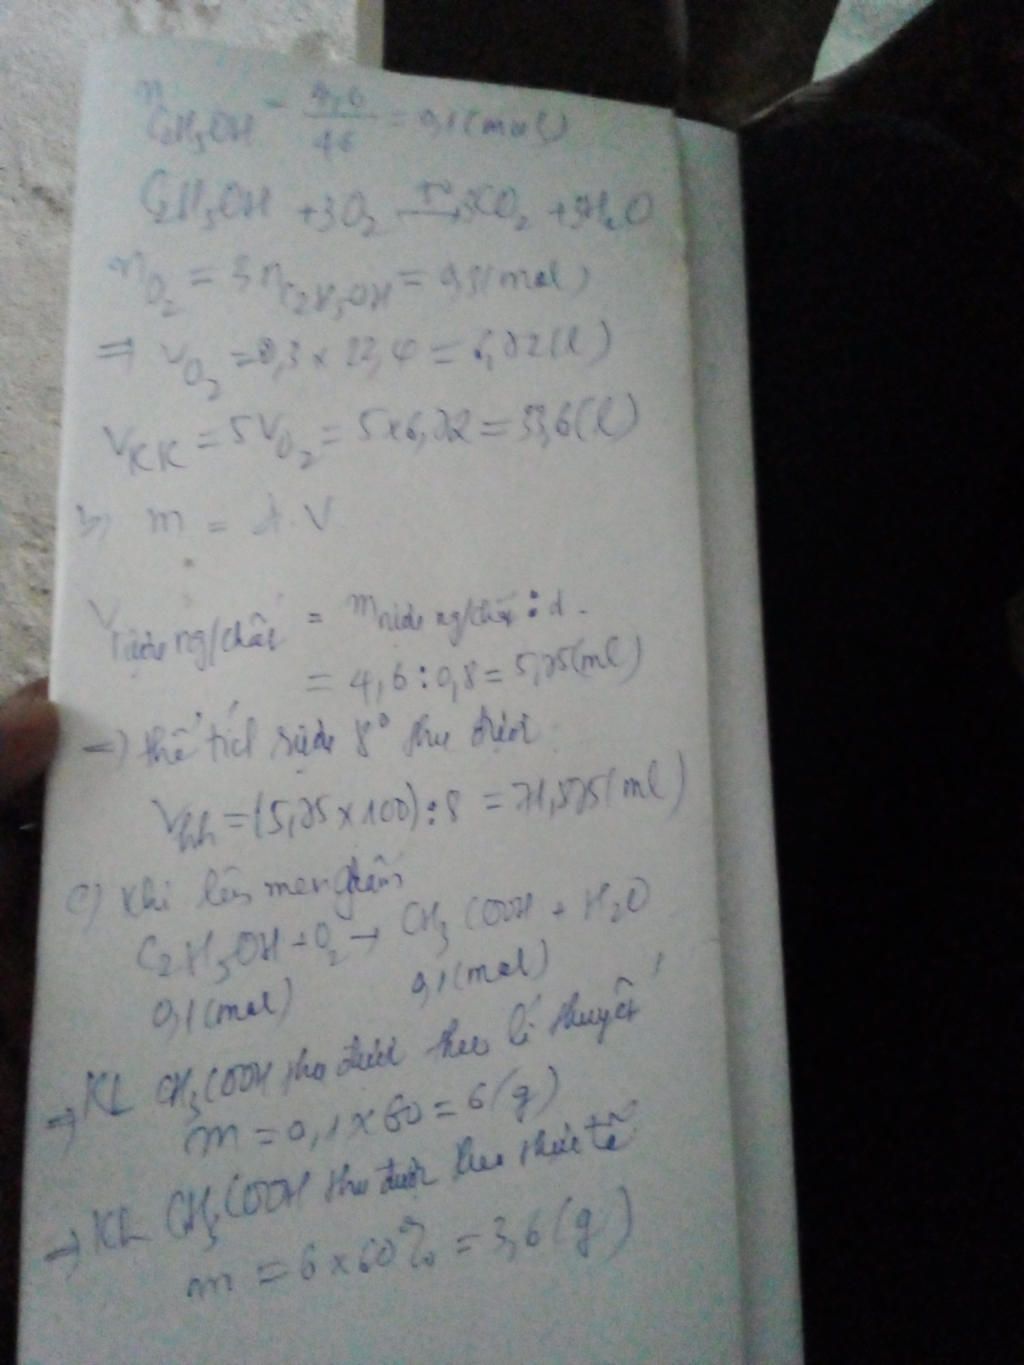 n
C2H5OH = 4,6/46 = 0,1(mol)
C2H5OH + 3O2 t°→ 2CO2 + 3H2O
nO2 = 3nC2H5OH = 0,3(mol)
⇒ VO2 = 0,3 x 22,4 = 6,72(l)
VKK = 5VO2 = 5x6,72 = 33,6(l)
b) m = d.V
Vrượu ng/chất = mrượu ng/chất : d.
= 4,6 : 0,8 = 5,75(ml)
→) thể tích rượu 8° thu được
Vhh = (5,75 x 100) : 8 = 71,875(ml)
c) Khi lên men giấm
C2H5OH + O2 → CH3COOH + H2O
0,1(mol) 0,1(mol)
⇒ KL CH3COOH thu được theo lí thuyết
m = 0,1 x 60 = 6(g)
→) KL CH3COOH thu được theo thực tế
m = 6 x 60% = 3,6(g)